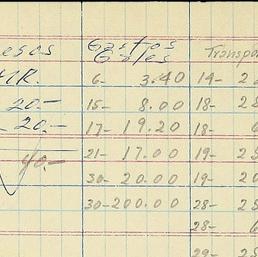 esos Gastos Transpo
Gales
HR. 6- 3.40 14- 2
20.- 15- 8.00 18- 2
20.- 17- 19.20 18-
40.- 21- 17.00 19- 2
30- 20.00 19- 2
30- 200.00 28- 2
28-
29- 2